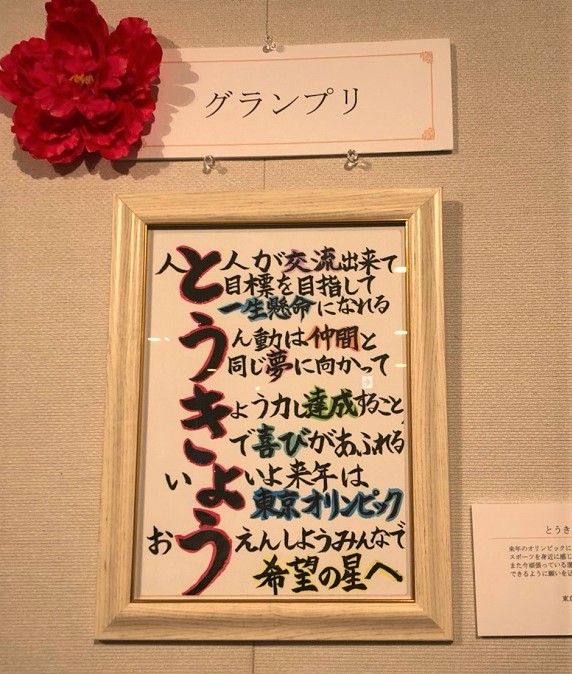 グランプリ
人と人が交流出来て
目標を目指して
一生懸命になれる
うん動は仲間と
同じ夢に向かって
きょう力し達成すること
で喜びがあふれる
いよいよ来年は
東京オリンピック
おうえんしようみんなで
希望の星へ
とうき
来年のオリンピックに
スポーツを身近に感じ
また今頑張っている
できるように願いを
東京